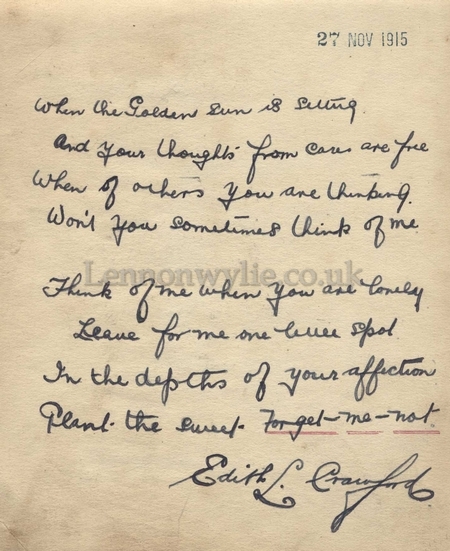 27 NOV 1915
When the Golden sun is setting
And your thoughts from cares are free
When of others you are thinking.
Won't you sometimes think of me
Lennonwylie.co.uk
Think of me when you are lonely
Leave for me one little spot
In the depths of your affection
Plant the sweet Forget-me-not.
Edith L. Crawford